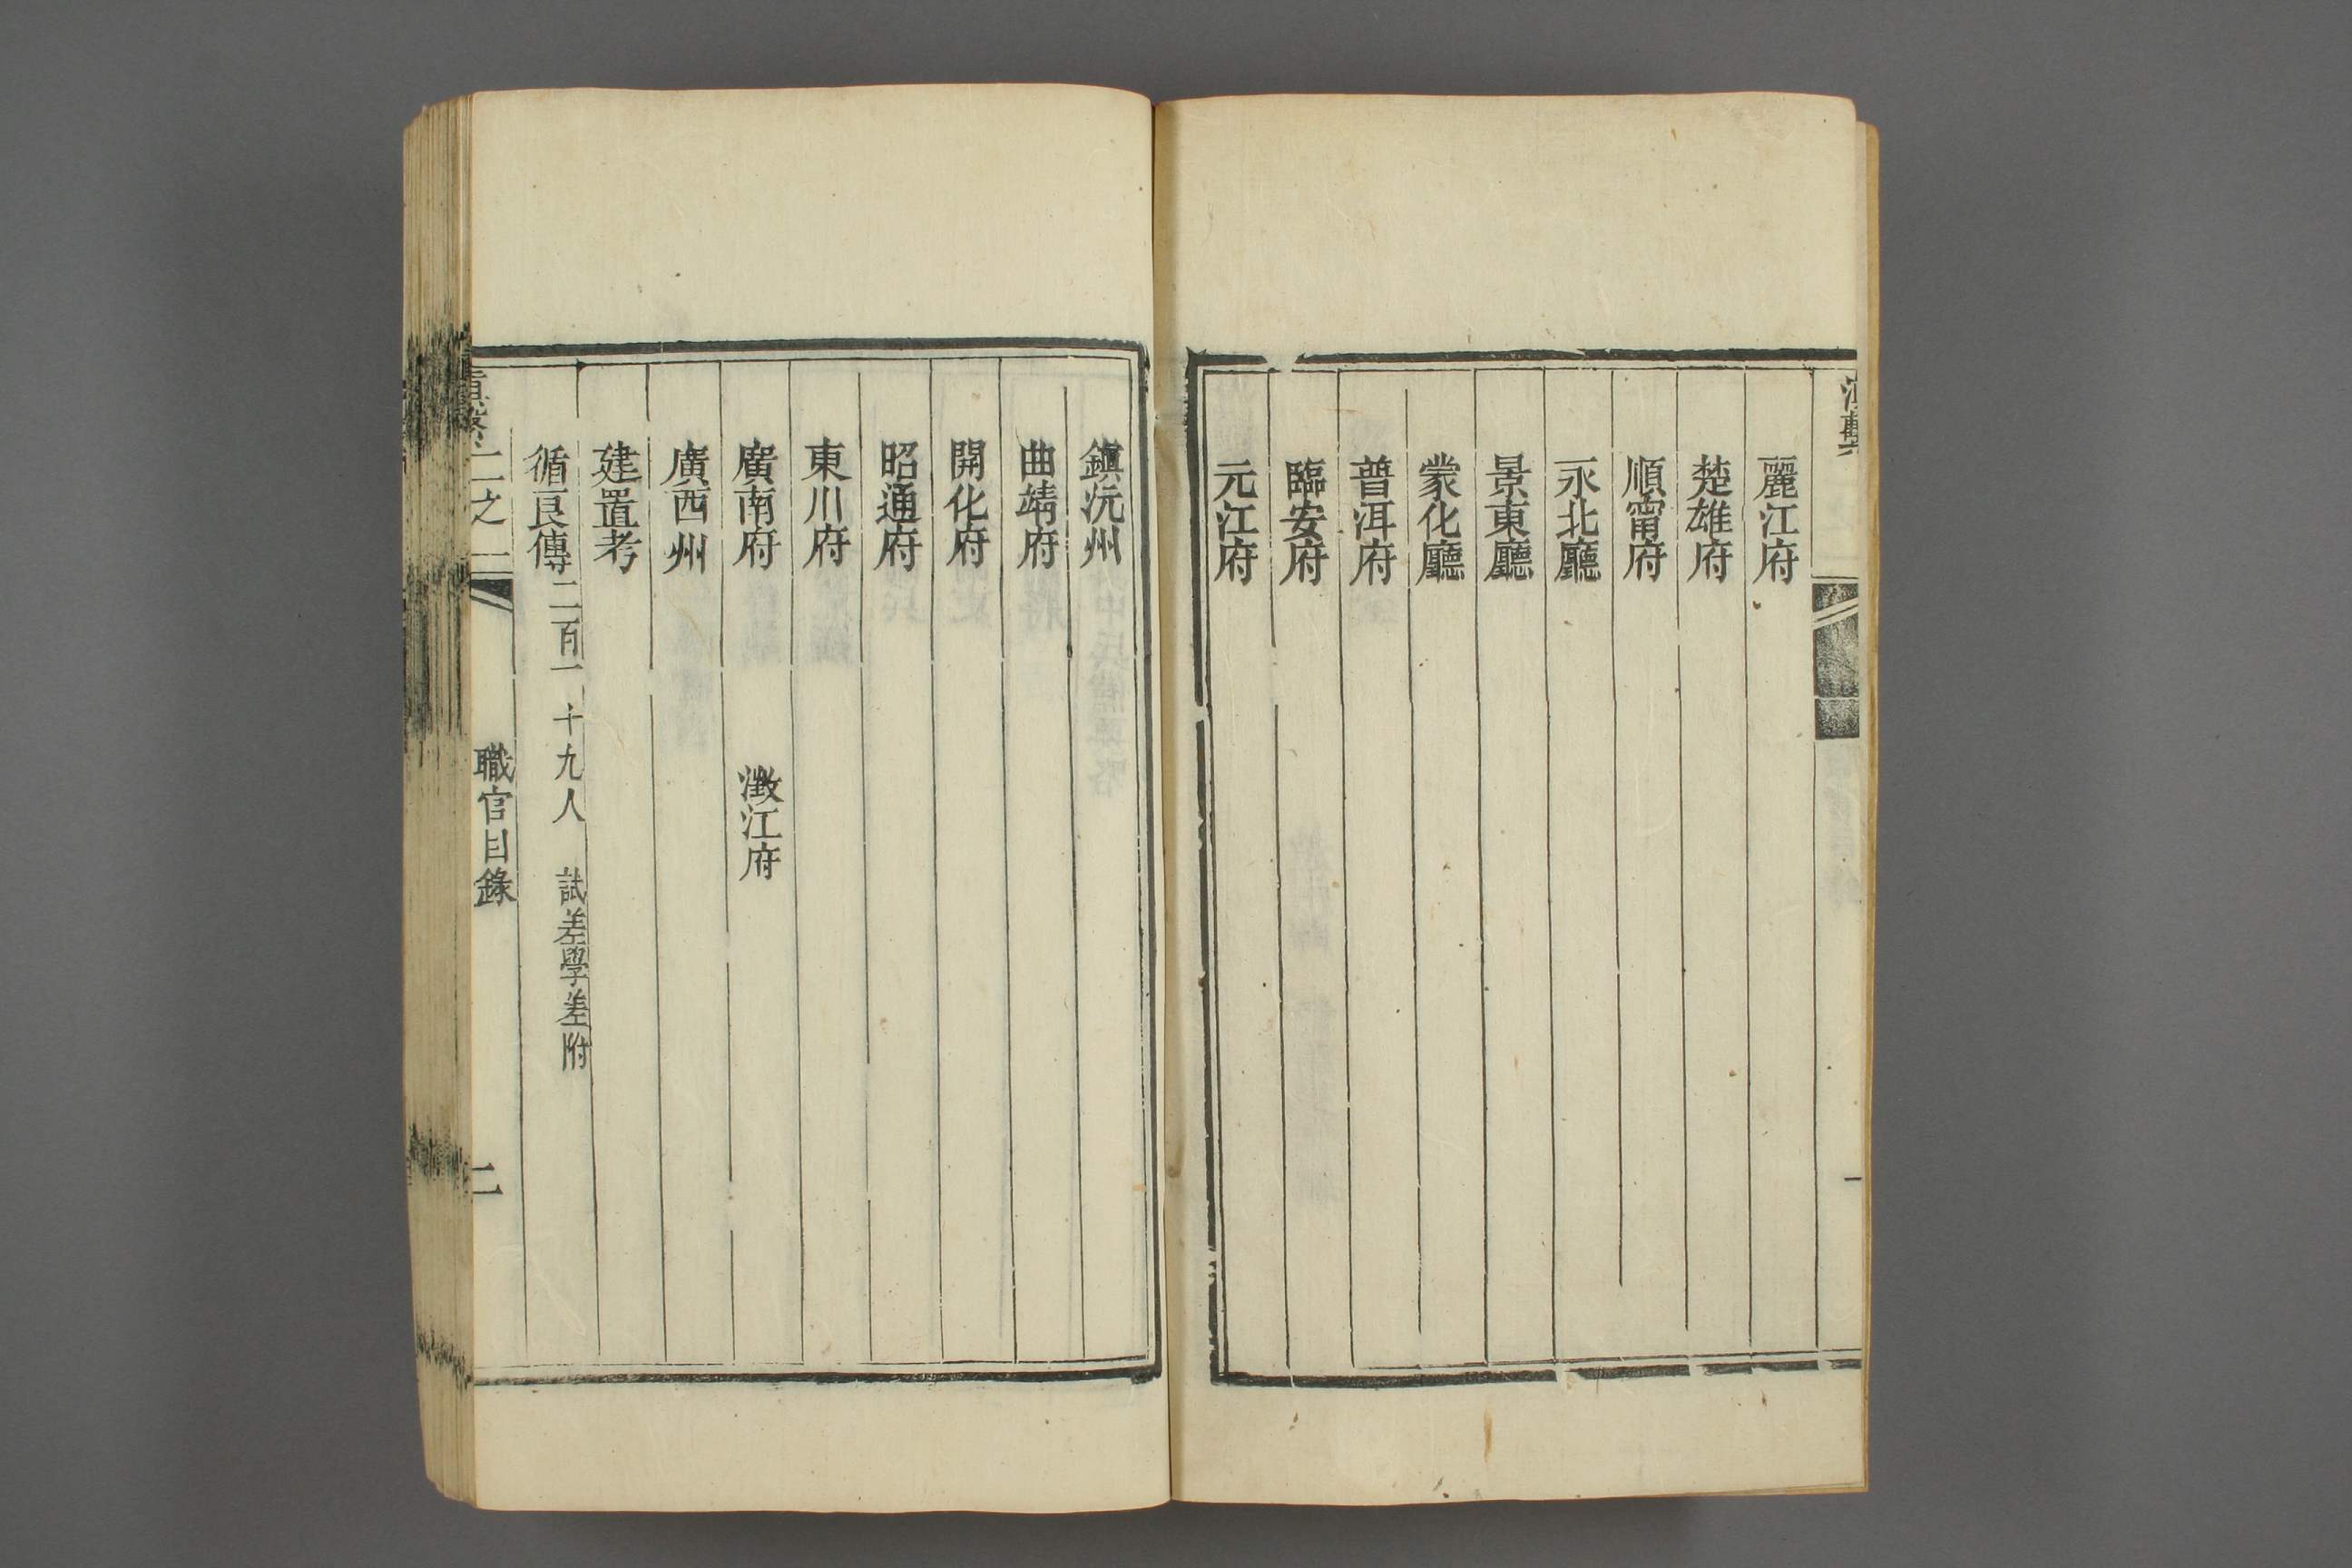 麗江府
楚雄府
順甯府
永北廳
景東廳
蒙化廳
普洱府
臨安府
元江府
一
鎮沅州
曲靖府
開化府
昭通府
東川府
廣南府 澂江府
廣西州
建置考
循良傳二百一十九人 試差學差附
二之一 職官目錄 二